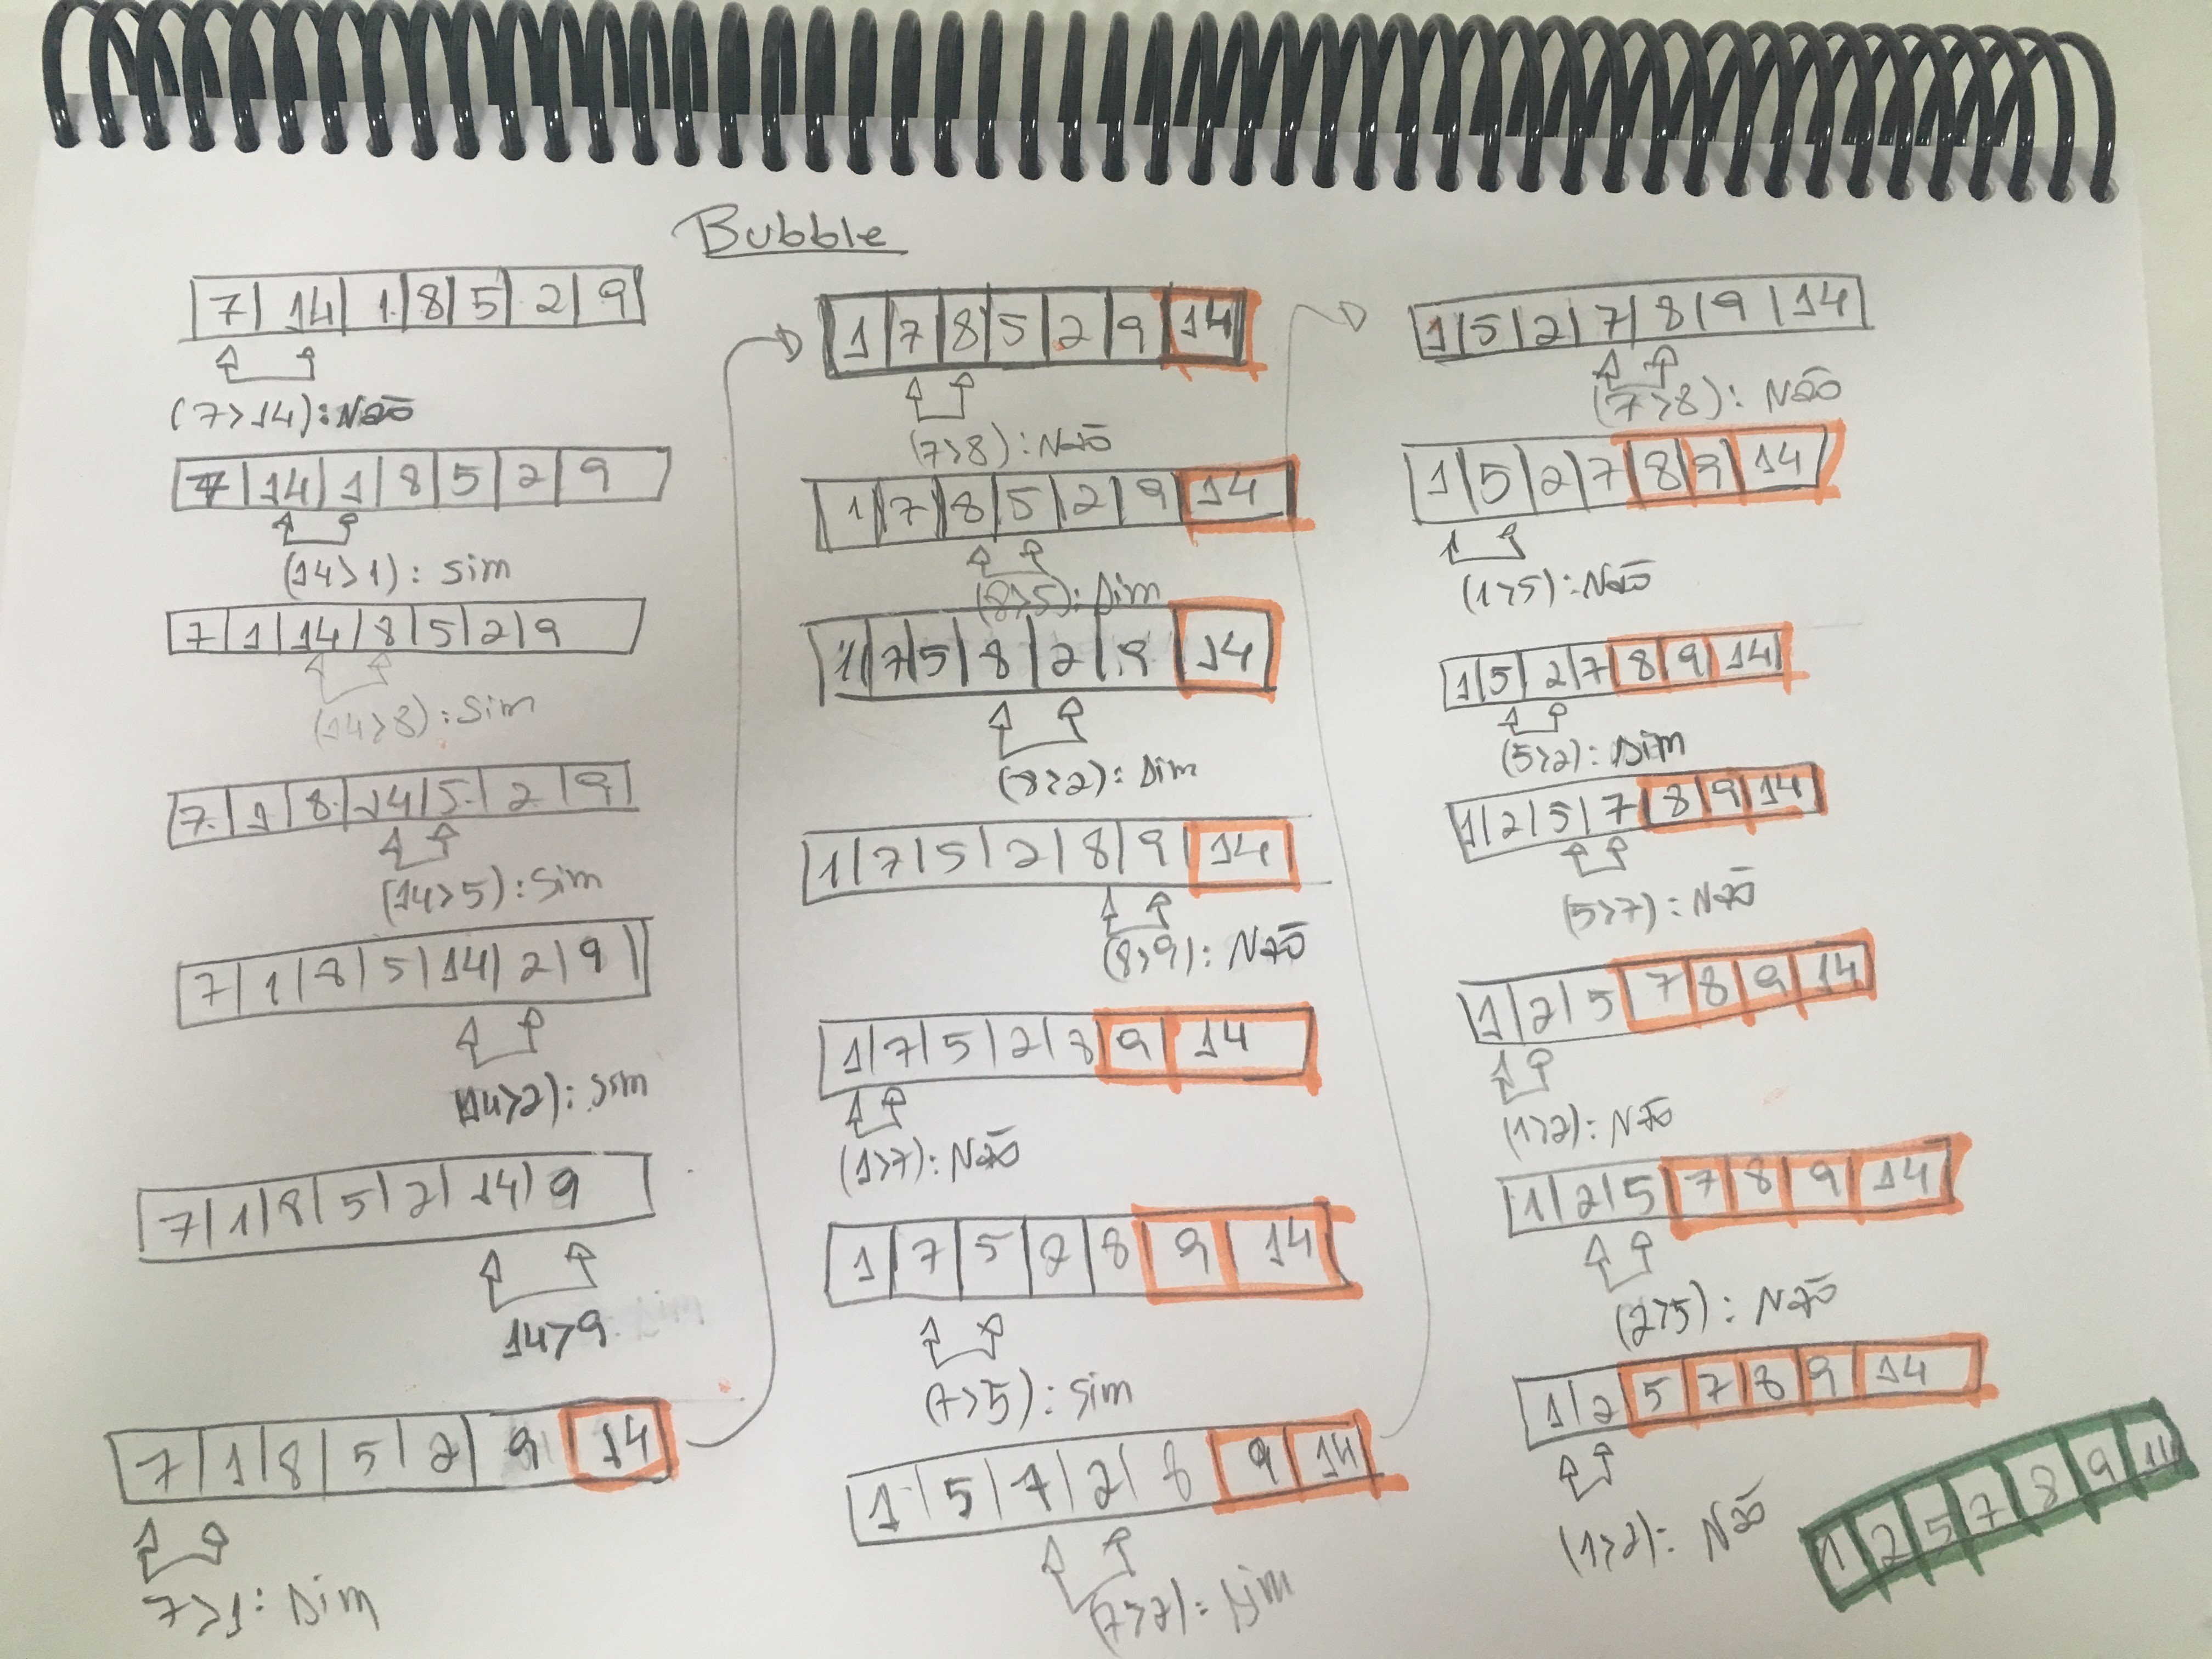 Bubble
7 | 14 | 1 | 8 | 5 | 2 | 9
(7>14): Não
7 | 14 | 1 | 8 | 5 | 2 | 9
(14>1): Sim
7 | 1 | 14 | 8 | 5 | 2 | 9
(14>8): Sim
7 | 1 | 8 | 14 | 5 | 2 | 9
(14>5): Sim
7 | 1 | 8 | 5 | 14 | 2 | 9
14>2): Sim
7 | 1 | 8 | 5 | 2 | 14 | 9
14>9: Sim
7 | 1 | 8 | 5 | 2 | 9 | 14
7>1: Sim
1 | 7 | 8 | 5 | 2 | 9 | 14
(7>8): Não
1 | 7 | 8 | 5 | 2 | 9 | 14
(8>5): Sim
1 | 7 | 5 | 8 | 2 | 9 | 14
(8>2): Sim
1 | 7 | 5 | 2 | 8 | 9 | 14
(8>9): Não
1 | 7 | 5 | 2 | 8 | 9 | 14
(1>7): Não
1 | 7 | 5 | 2 | 8 | 9 | 14
(7>5): Sim
1 | 5 | 7 | 2 | 8 | 9 | 14
(7>2): Sim
1 | 5 | 2 | 7 | 8 | 9 | 14
(7>8): Não
1 | 5 | 2 | 7 | 8 | 9 | 14
(1>5): Não
1 | 5 | 2 | 7 | 8 | 9 | 14
(5>2): Sim
1 | 2 | 5 | 7 | 8 | 9 | 14
(5>7): Não
1 | 2 | 5 | 7 | 8 | 9 | 14
(1>2): Não
1 | 2 | 5 | 7 | 8 | 9 | 14
(2>5): Não
1 | 2 | 5 | 7 | 8 | 9 | 14
(1>2): Não
1 | 2 | 5 | 7 | 8 | 9 | 14